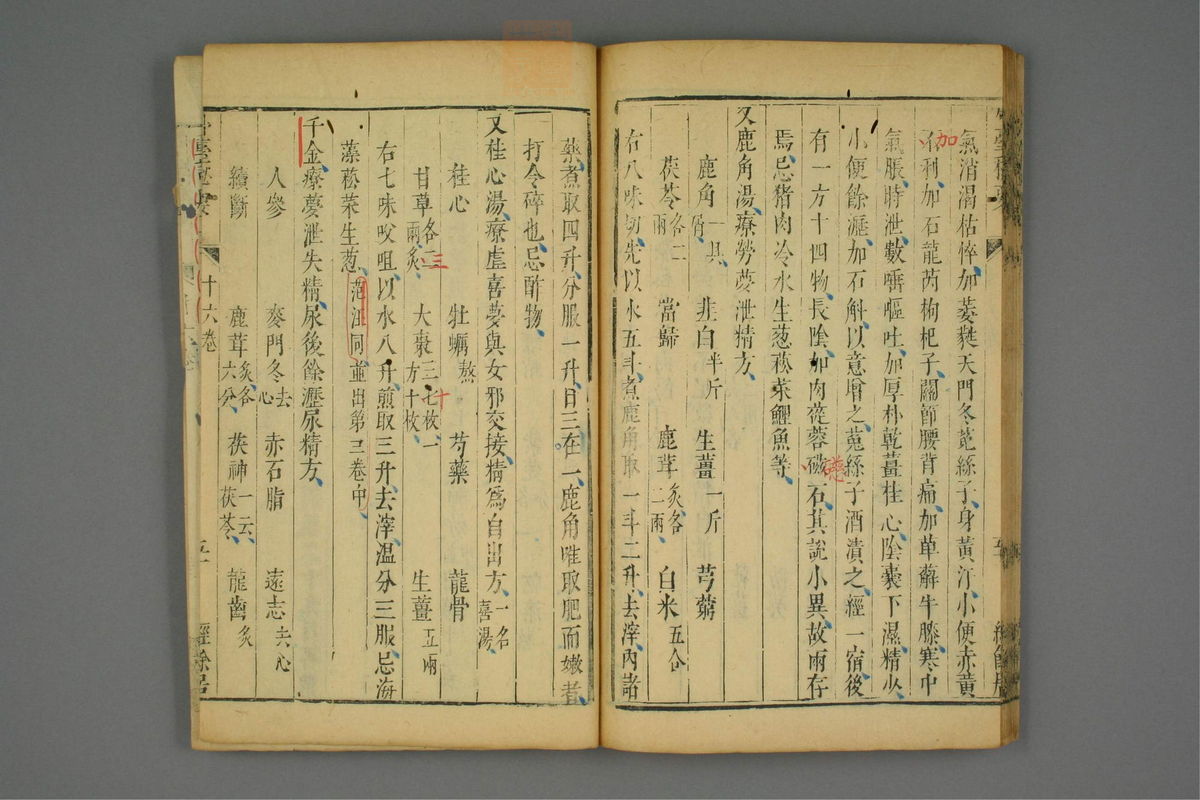 氣消渴枯悴加菱䕷天門冬菟絲子身黃汗小便赤黃
不利加石龍芮枸杞子關節腰背痛加萆薢牛膝寒中
加
氣脹時泄數嚥嘔吐加厚朴乾薑桂心陰囊下濕精少
小便餘瀝加石斛以意增之菟絲子酒漬之經一宿後
有一方十四物長陰加肉蓯蓉磁石其說小異故兩存
礠
焉忌猪肉冷水生葱菘菜鯉魚等
又鹿角湯療勞夢泄精方
鹿角一具屑 韭白半斤 生薑一斤 芎藭
茯苓各二兩 當歸 鹿茸炙各二兩 白米五合
右八味切先以水五斗煮鹿角取一斗二升去滓內諸
藥煮取四升分服一升日三在一鹿角唯取肥而嫩者
打令碎也忌酢物
又桂心湯療虛喜夢與女邪交接精爲自出方一名喜湯
桂心 牡蠣熬 芍藥 龍骨
甘草各二兩炙 大棗三七枚一方十枚 生薑五兩
三
十
右七味㕮咀以水八升煎取三升去滓溫分三服忌海
藻菘菜生葱范汪同並出第三卷中
千金療夢泄失精尿後餘瀝尿精方
人參 麥門冬去心 赤石脂 遠志去心
續斷 鹿茸炙各六分 茯神一云茯苓 龍齒炙
十六卷
經餘居